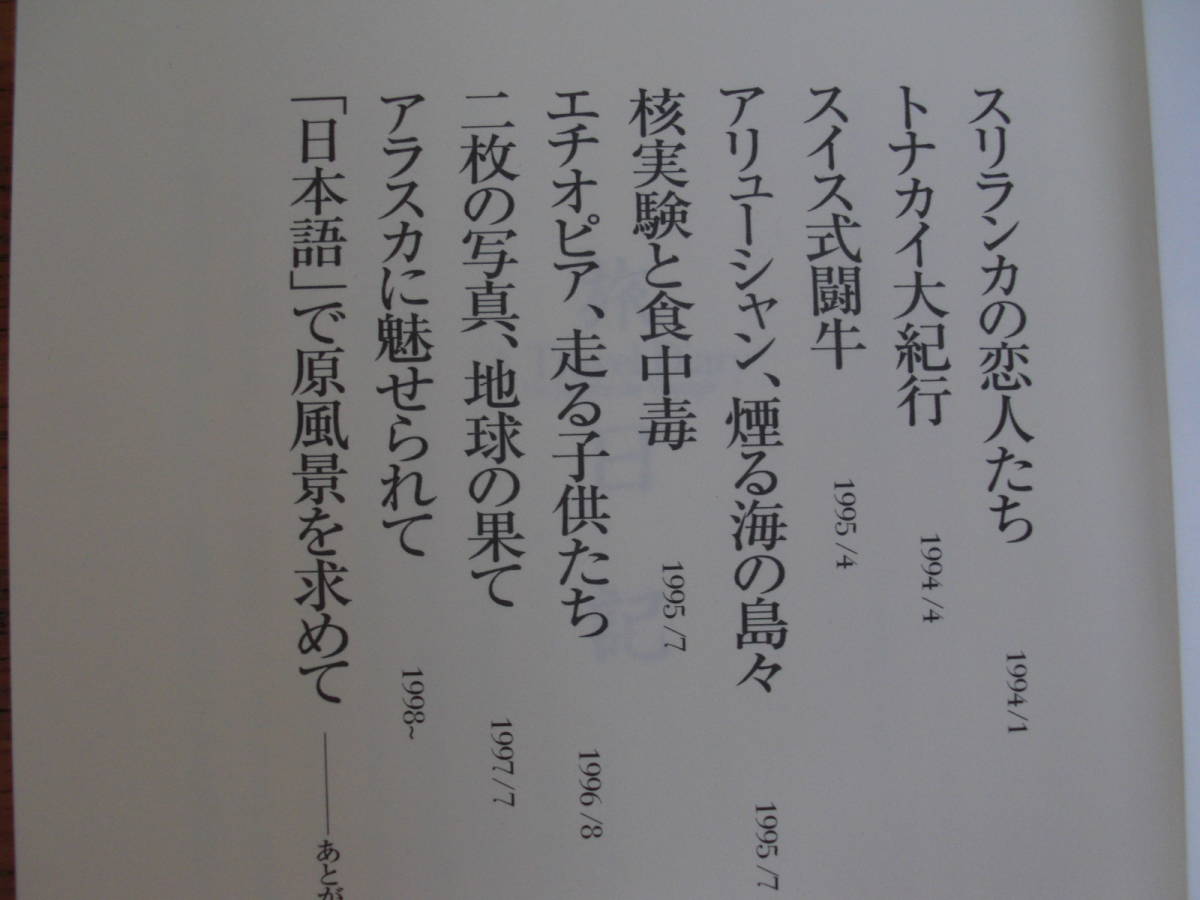 スリランカの恋人たち 1994/1
トナカイ大紀行 1994/4
スイス式闘牛 1995/4
アリューシャン、煙る海の島々 1995/7
核実験と食中毒 1995/7
エチオピア、走る子供たち 1996/8
二枚の写真、地球の果て 1997/7
アラスカに魅せられて 1998~
「日本語」で原風景を求めて ——あとが